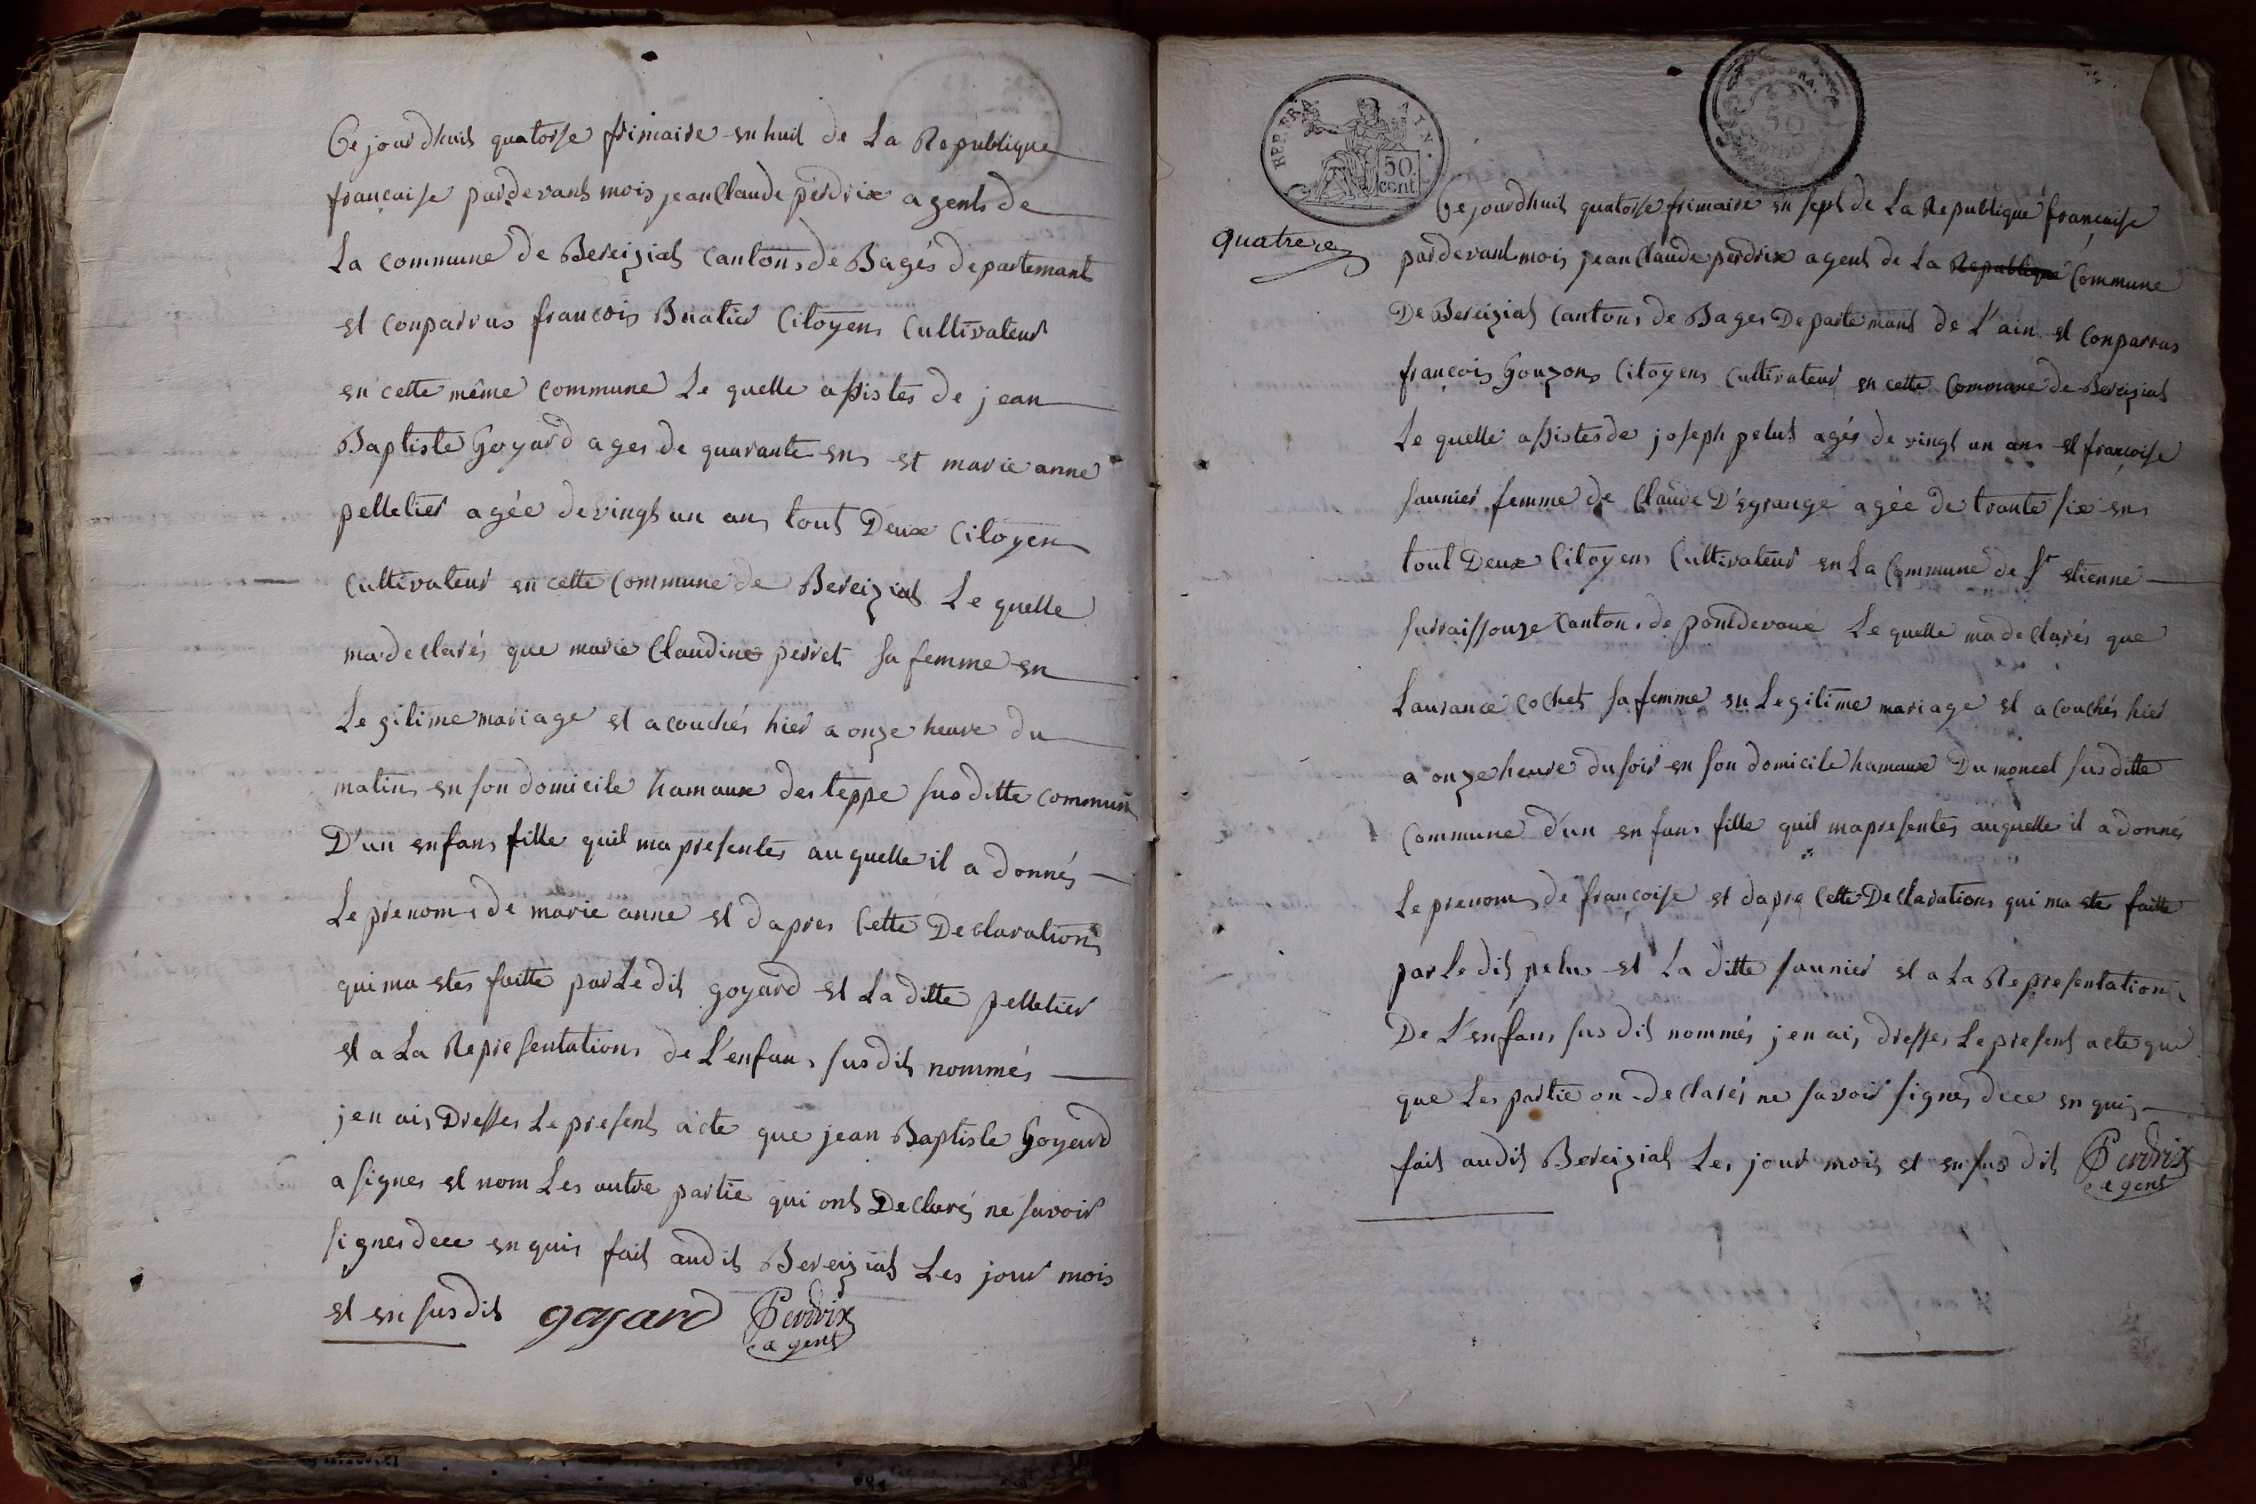 Ce jourdhuit quatorse frimaire en huit de La Republique
française pardevant mois jean Claude perdrix agent de
La commune de Bereiziat Canton de Bagés departemant
et conparrus francois Buatier Citoyens Cultivateur
en cette même commune Le quelle assistes de jean
Baptiste Goyard ages de quarante ens et marie anne
pelletier agée de vingt un ans tout Deux Citoyens
Cultivateur en cette Commune de Bereiziat Le quelle
ma declarés que marie Claudine perret sa femme en
Legitime mariage et acouchés hier a onze heure du
matin en son domicile hamaux des teppe sus ditte commune
D'un enfans fille quil ma presentés au quelle il a donnés
Le prenom de marie anne et dapres Cette Declaration
qui ma etes faitte par Le dit goyard et La ditte pelletier
et a La Representations de L'enfans sus dit nommés
jen ais Dresses Le present acte que jean Baptiste Goyard
a signes et nom Les autre partie qui ont Declarés ne savoir
signes dece en quis fait audit Bereiziat Les jour mois
et en sus dit goyard Perdrix
agent
REP. FRA.
50
cent.
50
quatre
Ce jourdhuit quatorse frimaire en sept de La Republique française
pardevant mois jean Claude perdrix agent de La Republique Commune
De Bereiziat Cantons de Bages Departemant de L'ain et Conparrus
françois Gouzons Citoyens Cultivateur en cette Commune de Bereiziat
Le quelle assistes de joseph pelus agés de vingt un ans et françoise
saunier femme de Claude D'egrange agée de trante six ens
tout Deux Citoyens Cultivateur en La Commune de St etienne
surraissouze Canton de pontdevaux Le quelle ma declarés que
Laurance Cochet sa femme en Legitime mariage et acouchés hier
a onze heure du soir en son domicile hamaux Du moncel sus ditte
Commune d'un enfans fille quil ma presentés au quelle il a donnés
Le prenom de françoise et dapre Cette Declarations qui ma etes faitte
par Le dit pelus et La ditte saunier et a La Representation
De L'enfans sus dit nommés jen ais dresses Le present acte que
que Les partie on declarés ne savoir signes dece en quis
fait audit Bereiziat Les jour mois et en sus dit Perdrix
agent